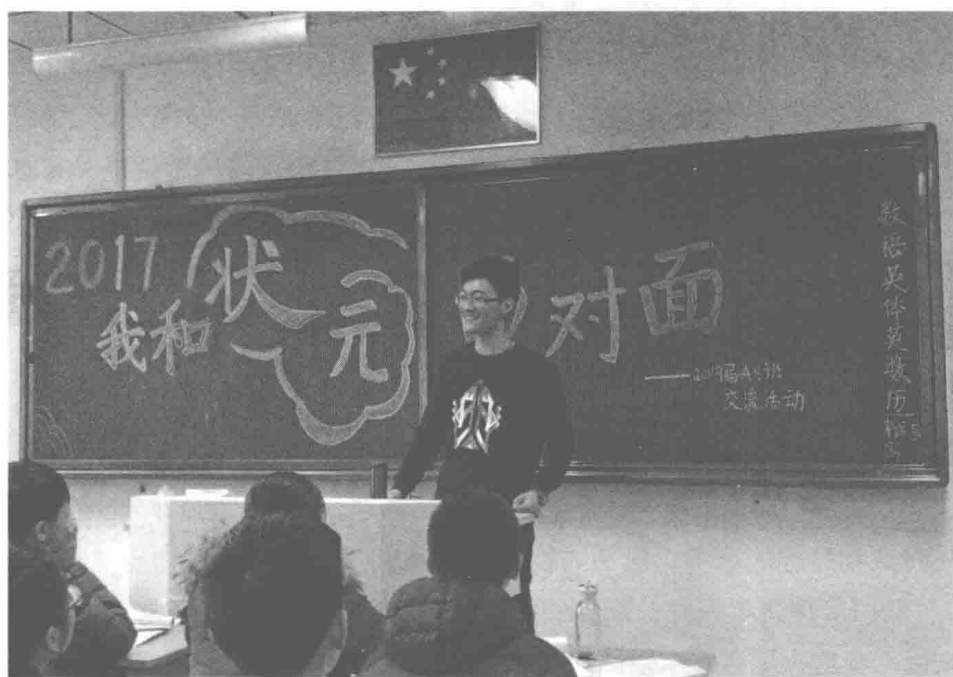 2017
我和状元
对面
——2019届A4班
交流活动
数
语
英
体
英
数
历